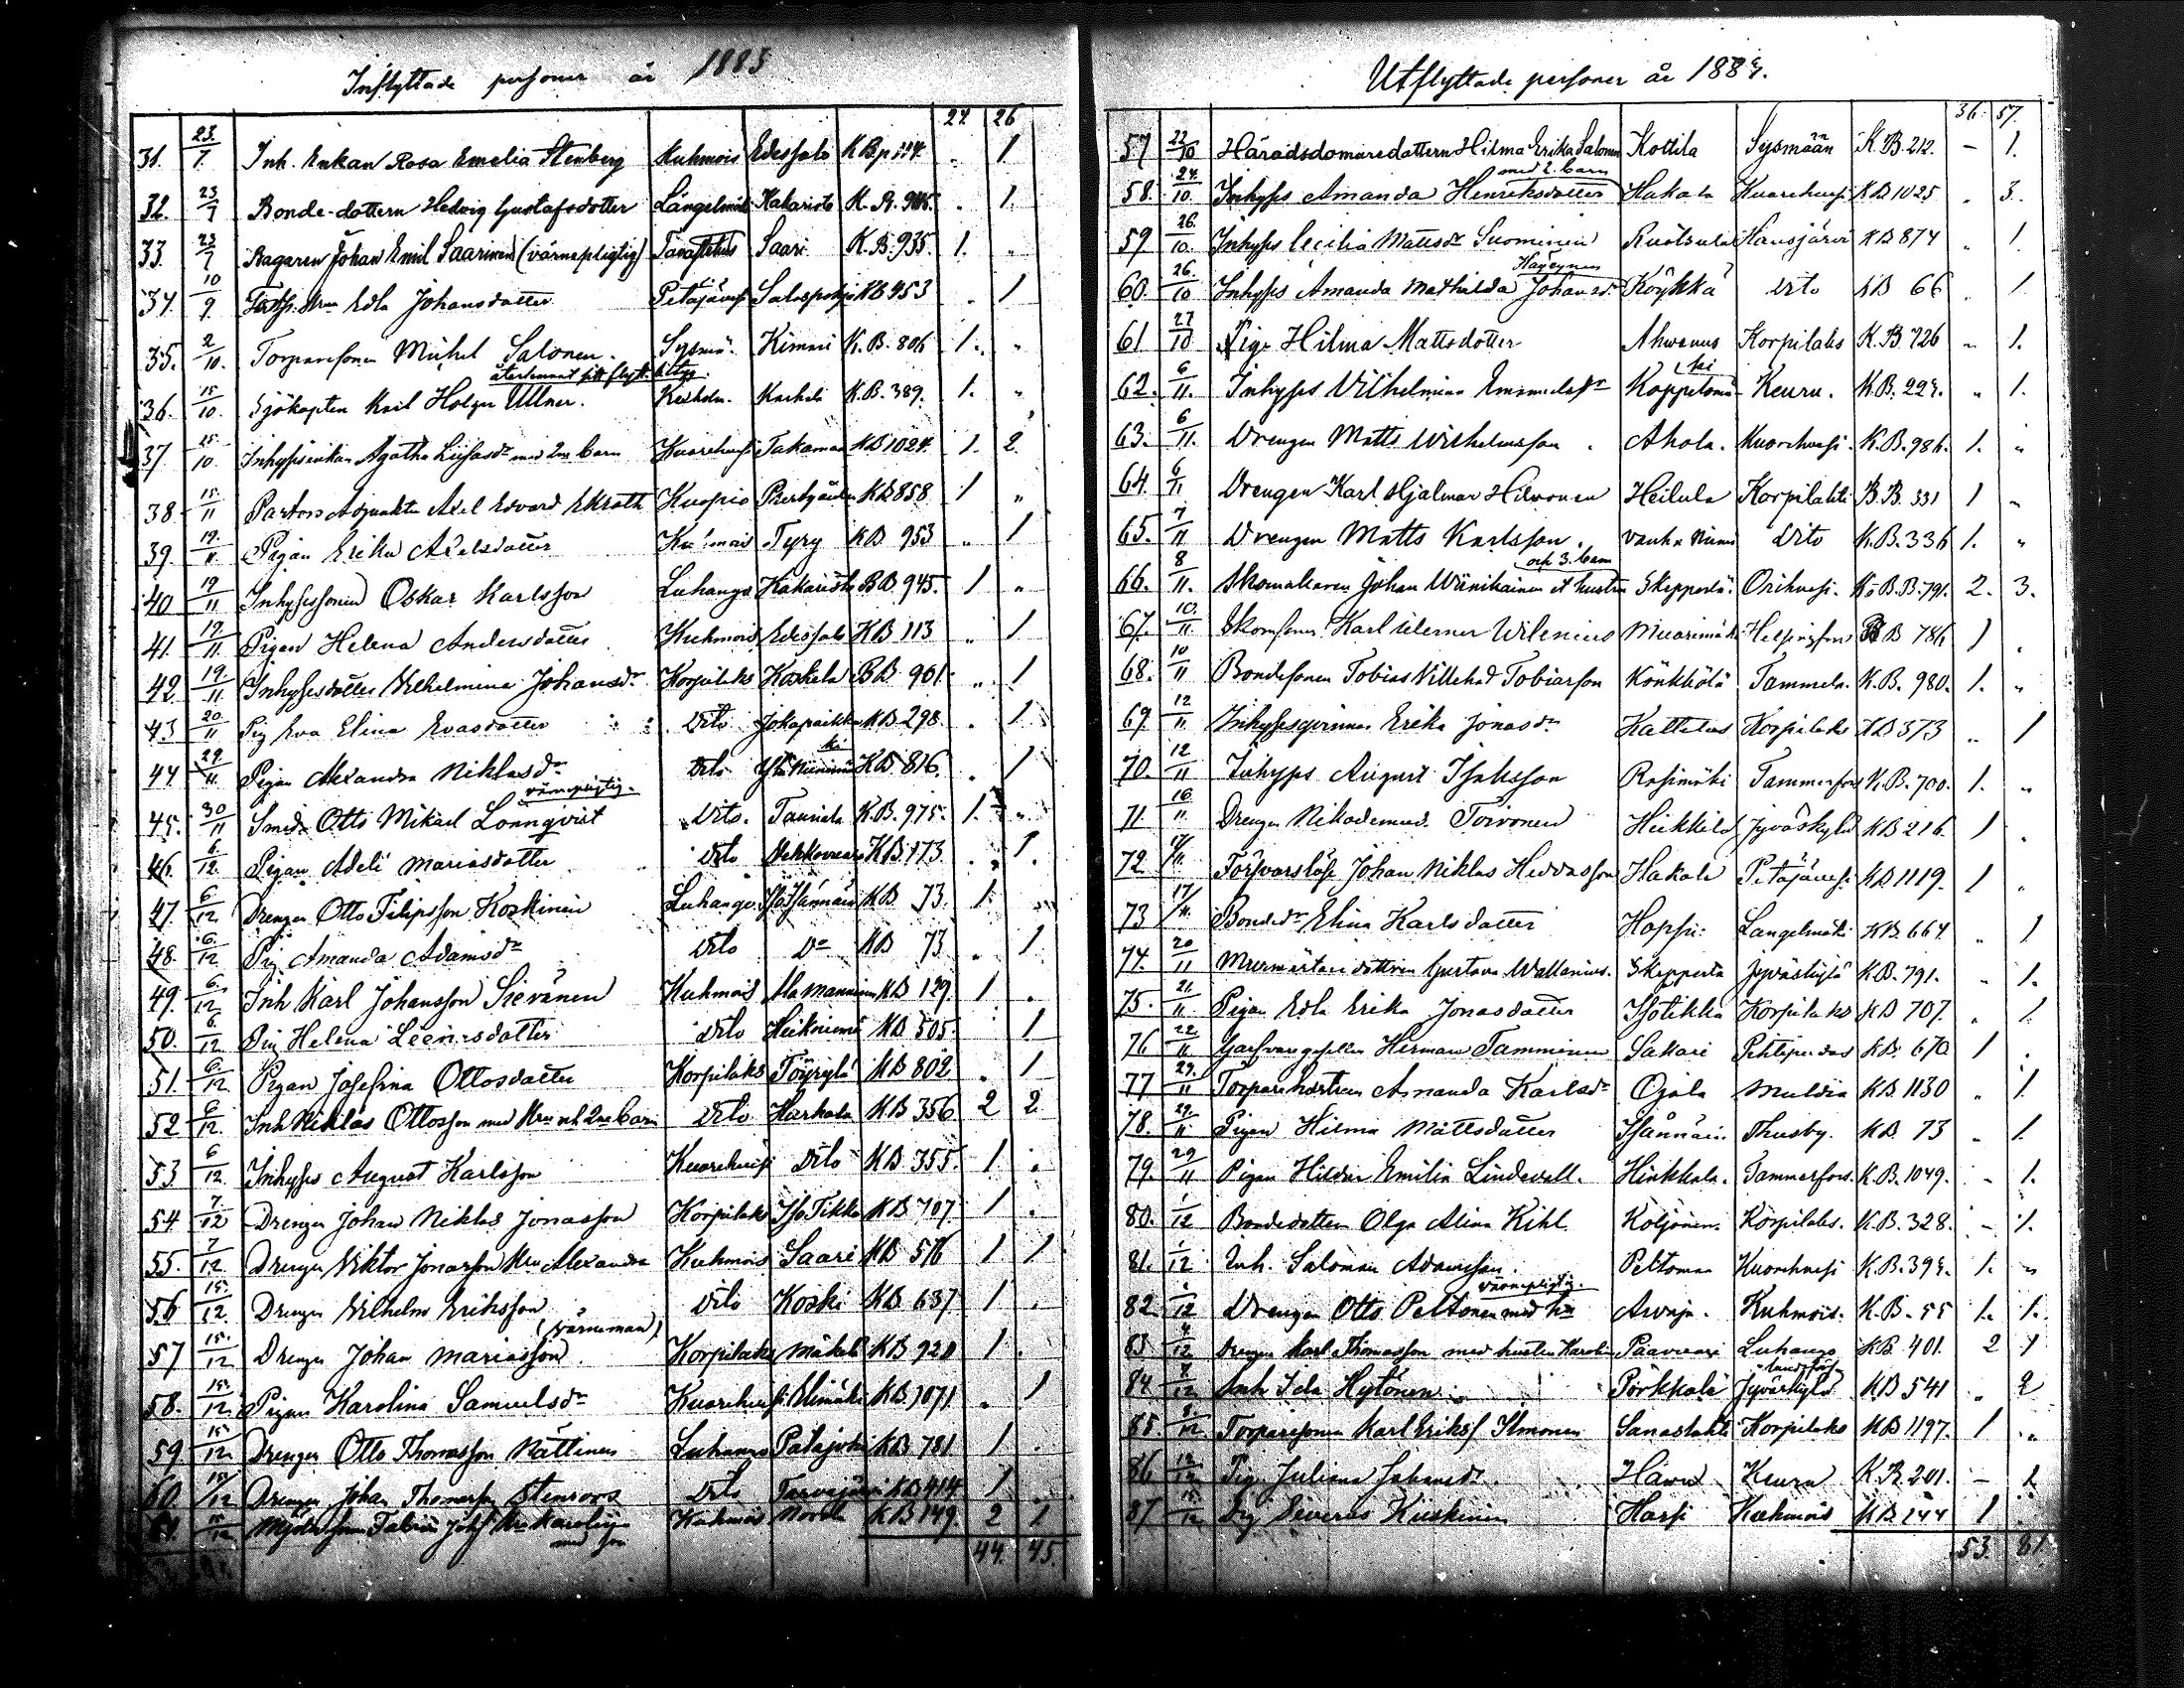 Inflyttade personer år 1885
27 26
31. 23/7 Inh. Enkan Rosa Emelia Stenberg Kuhmois Edessalo KB p 114. " 1
32. 23/7 Bonde-dottern Hedvig Gustafsdotter Längelmäki Kakaristo K.B. 945. . 1.
33. 23/7 Bagaren Johan Emil Saarinen (värnepligtig) Tavastehus Saari K.B. 935. 1. "
34. 10/9 Edla Johansdotter Petäjävesi Salospohja KB 953 . 1
35. 2/10. Torparesonen Mickel Salonen. Sysmä. Kimari K.B. 806 1. "
återlemnat sitt flytt.betyg.
36. 15/10. Sjökapten Karl Holger Ullner. Kexholm. Karhola K.B. 389. 1. "
37 15/10 Inhysisenkan Agatha Liisasdr med 2ne barn Kuorehvesi Takamaa KB 1024. 1. 2.
38 15/11 Pastors Adjunkten Axel Edvard Ekroth Kuopio Prestgården KB 858 1 "
39. 19/11. Pigan Erika Axelsdotter Kuhmois Tyry KB 953 " 1
40 19/11 Inhysessonen Oskar Karlsson Luhango Kakaristo BB 945. 1 "
41. 19/11. Pigan Helena Andersdotter Kuhmois Edessalo KB 113 " 1
42 19/11 Inhysesdotter Vilhelmina Johansdr Korpilaks Koskela BB 901. " 1
43 20/11 Pig Eva Elina Evasdotter Dito Jokapaikka KB 298 . 1
44. 29/11. Pigan Alexandra Niklasdr Dito KB 816. . 1
värnepligtig.
45. 30/11 Smed Otto Mikael Lönnqvist Dito. Tauriala K.B. 975. 1. "
46. 6/12. Pigan Adeli Mariasdotter Dito KB 173 . 1.
47. 6/12 Drengen Otto Filipsson Koskinen Luhango KB 73. 1. "
48. 6/12 Pig Amanda Adamsdr Dito Do KB 73 . 1
49. 6/12 Inh Karl Johansson Sievänen Kuhmois KB 129 1 .
50. 6/12 Pig Helena Leenasdotter Dito Heikniemi KB 505. 1
51. 6/12 Pigan Josefina Ottosdotter Korpilaks Töyrylä KB 802 " 1
52 6/12. Inh Niklas Ottosson med Hru och 2ne barn Dito Harkala KB 356 2 2
53 6/12. Inhyses August Karlsson Kuorehvesi Dito KB 355. 1 .
54. 7/12 Drengen Johan Niklas Jonasson Korpilaks Iso Tikka KB 707 1 .
55. 7/12. Drengen Viktor Jonasson Hru Alexandra Kuhmois Saari KB 576 1 1
56 15/12. Drengen Vilhelm Eriksson Dito Koski KB 637 1 .
(värneman)
57 15/12 Drengen Johan Mariasson. Korpilaks Mäkelä KB 920 1 .
58. 15/12. Pigan Karolina Samuelsdr Kuorehvesi KB 1071 " 1
59. 15/12. Drengen Otto Thomasson Nättinen Luhango Patajoki KB 781 1 .
60. 15/12 Drengen Johan Thomasson Stenroos Dito KB 414 1
61. 15/12 Kuhmois KB 149 2 1
med son
44. 45.
Utflyttade personer år 1885.
36. 57.
57 22/10 Häradsdomaredottern Hilma Erika Salonen Kottila Sysmään K.B. 212. - 1.
med 2. barn
58. 24/10. Inhyses Amanda Henriksdotter Hakala Kuorehvesi KB 1025 " 3.
59 26/10. Inhyses Cecilia Mattsdr Suominen Ruotsula Hausjärvi KB 874 " 1.
60. 26/10 Inhyses Amanda Mathilda Johansdr Köykkä Dito KB 66 . 1
61 27/10 Pigan Hilma Mattsdotter Ahvenus Korpilaks K.B. 726 " 1.
62. 6/11. Inhyses Vilhelmina Emanuelsdr Koppelomä-ki Keuru. K.B. 229. " 1.
63. 6/11. Drengen Matts Wilhelmsson. Ahola. Kuorehvesi. K.B. 986. 1. "
64. 6/11 Drengen Karl Hjalmar Hirvonen Heilala Korpilahti B.B. 331 1 "
65. 7/11 Drengen Matts Karlsson. Dito K.B. 336 1. "
och 3. barn
66. 8/11. Skomakaren Johan Wiinikainen et hustru Skeppertä. Orihvesi. K.B.B. 791. 2. 3.
67. 10/11. Karl Werner Wilenius Muurimäki Helsingfors BB 786 1 .
68. 10/11 Bondesonen Tobias Villehad Tobiasson Könkkölä Tammela. K.B. 980. 1. "
69. 12/11. Inhysesqvinnan Erika Jonasdr Kattelus Korpilaks KB 373 " 1
70. 12/11 Inhyses August Isaksson Rasimäki Tammerfors K.B. 700. 1. "
71. 16/11. Drengen Nikodemus Toivonen Heikkilä Jyväskylä KB 216. 1 .
72 17/11. Försvarslöse Johan Niklas Hedvasson Hakala Petäjävesi KB 1119. 1 "
73 17/11. Bondedr Elina Karlsdotter Hopsu Längelmäki KB 664 " 1
74. 20/11 Murmästaredottren Gustava Wallenius. Skepperta Jyväskylä K.B. 791. " 1.
75. 21/11. Pigan Edla Erika Jonasdotter Isotikka Korpilaks KB 707. " 1
76 22/11 Garfvaregesellen Herman Tamminen Sakari KB. 670 1 .
77 29/11 Torparehustrun Amanda Karlsdr Ojala Muldia KB 1130 " 1
78. 29/11 Pigan Hilma Mattsdotter Thusby. KB. 73 " 1.
79. 29/11 Pigan Hilda Emilia Lindevall. Hinkkala. Tammerfors. K.B. 1049. - 1.
80. 1/12 Bondedottern Olga Alina Kihl. Koljonen. Korpilaks. K.B. 328. - 1.
81. 1/12 Inh. Salomon Adamsson. Peltomaa Kuorehvesi K.B. 395. 1. "
värnepligtig.
82. 1/12 Drengen Otto Peltonen med hu Arvaja. Kuhmois. K.B. 55 1. 1.
83 4/12 Drengen Karl Thomasson med hustru Karolin Päävuori Luhango KB 401. 2 1
84 7/12 Inh Ida Hytönen. Pörkkälä Jyväskylä KB 541 " 2
85 9/12 Torparesonen Karl Eriks. Ilmonen Korpilaks KB 1197. 1 "
86 12/12 Pig. Juliana Johansdr. Keuru K.B. 201. - 1
87 15/12 Drg Severus Kuhmois KB 144 1 .
53. 81.